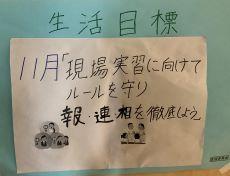 生活目標
11月「現場実習に向けて
ルールを守り
報・連・相を徹底しよう